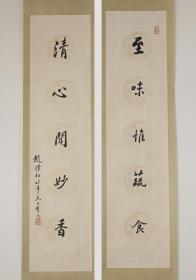 至味惟蔬食
清心聞妙香
趙樸初